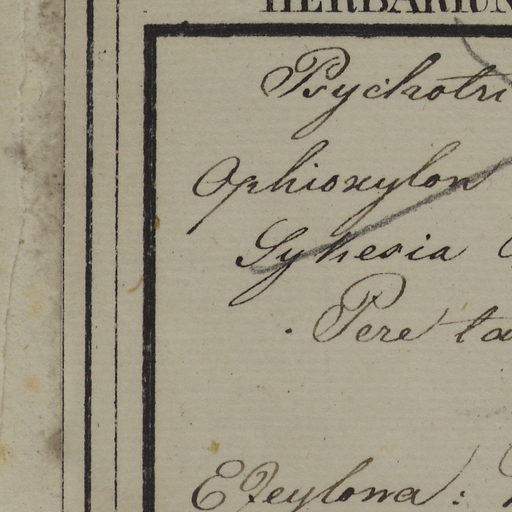 HERBARIUM
Psychotri
Ophioxylon
Sykesia
Pere ta
E Zeylona: